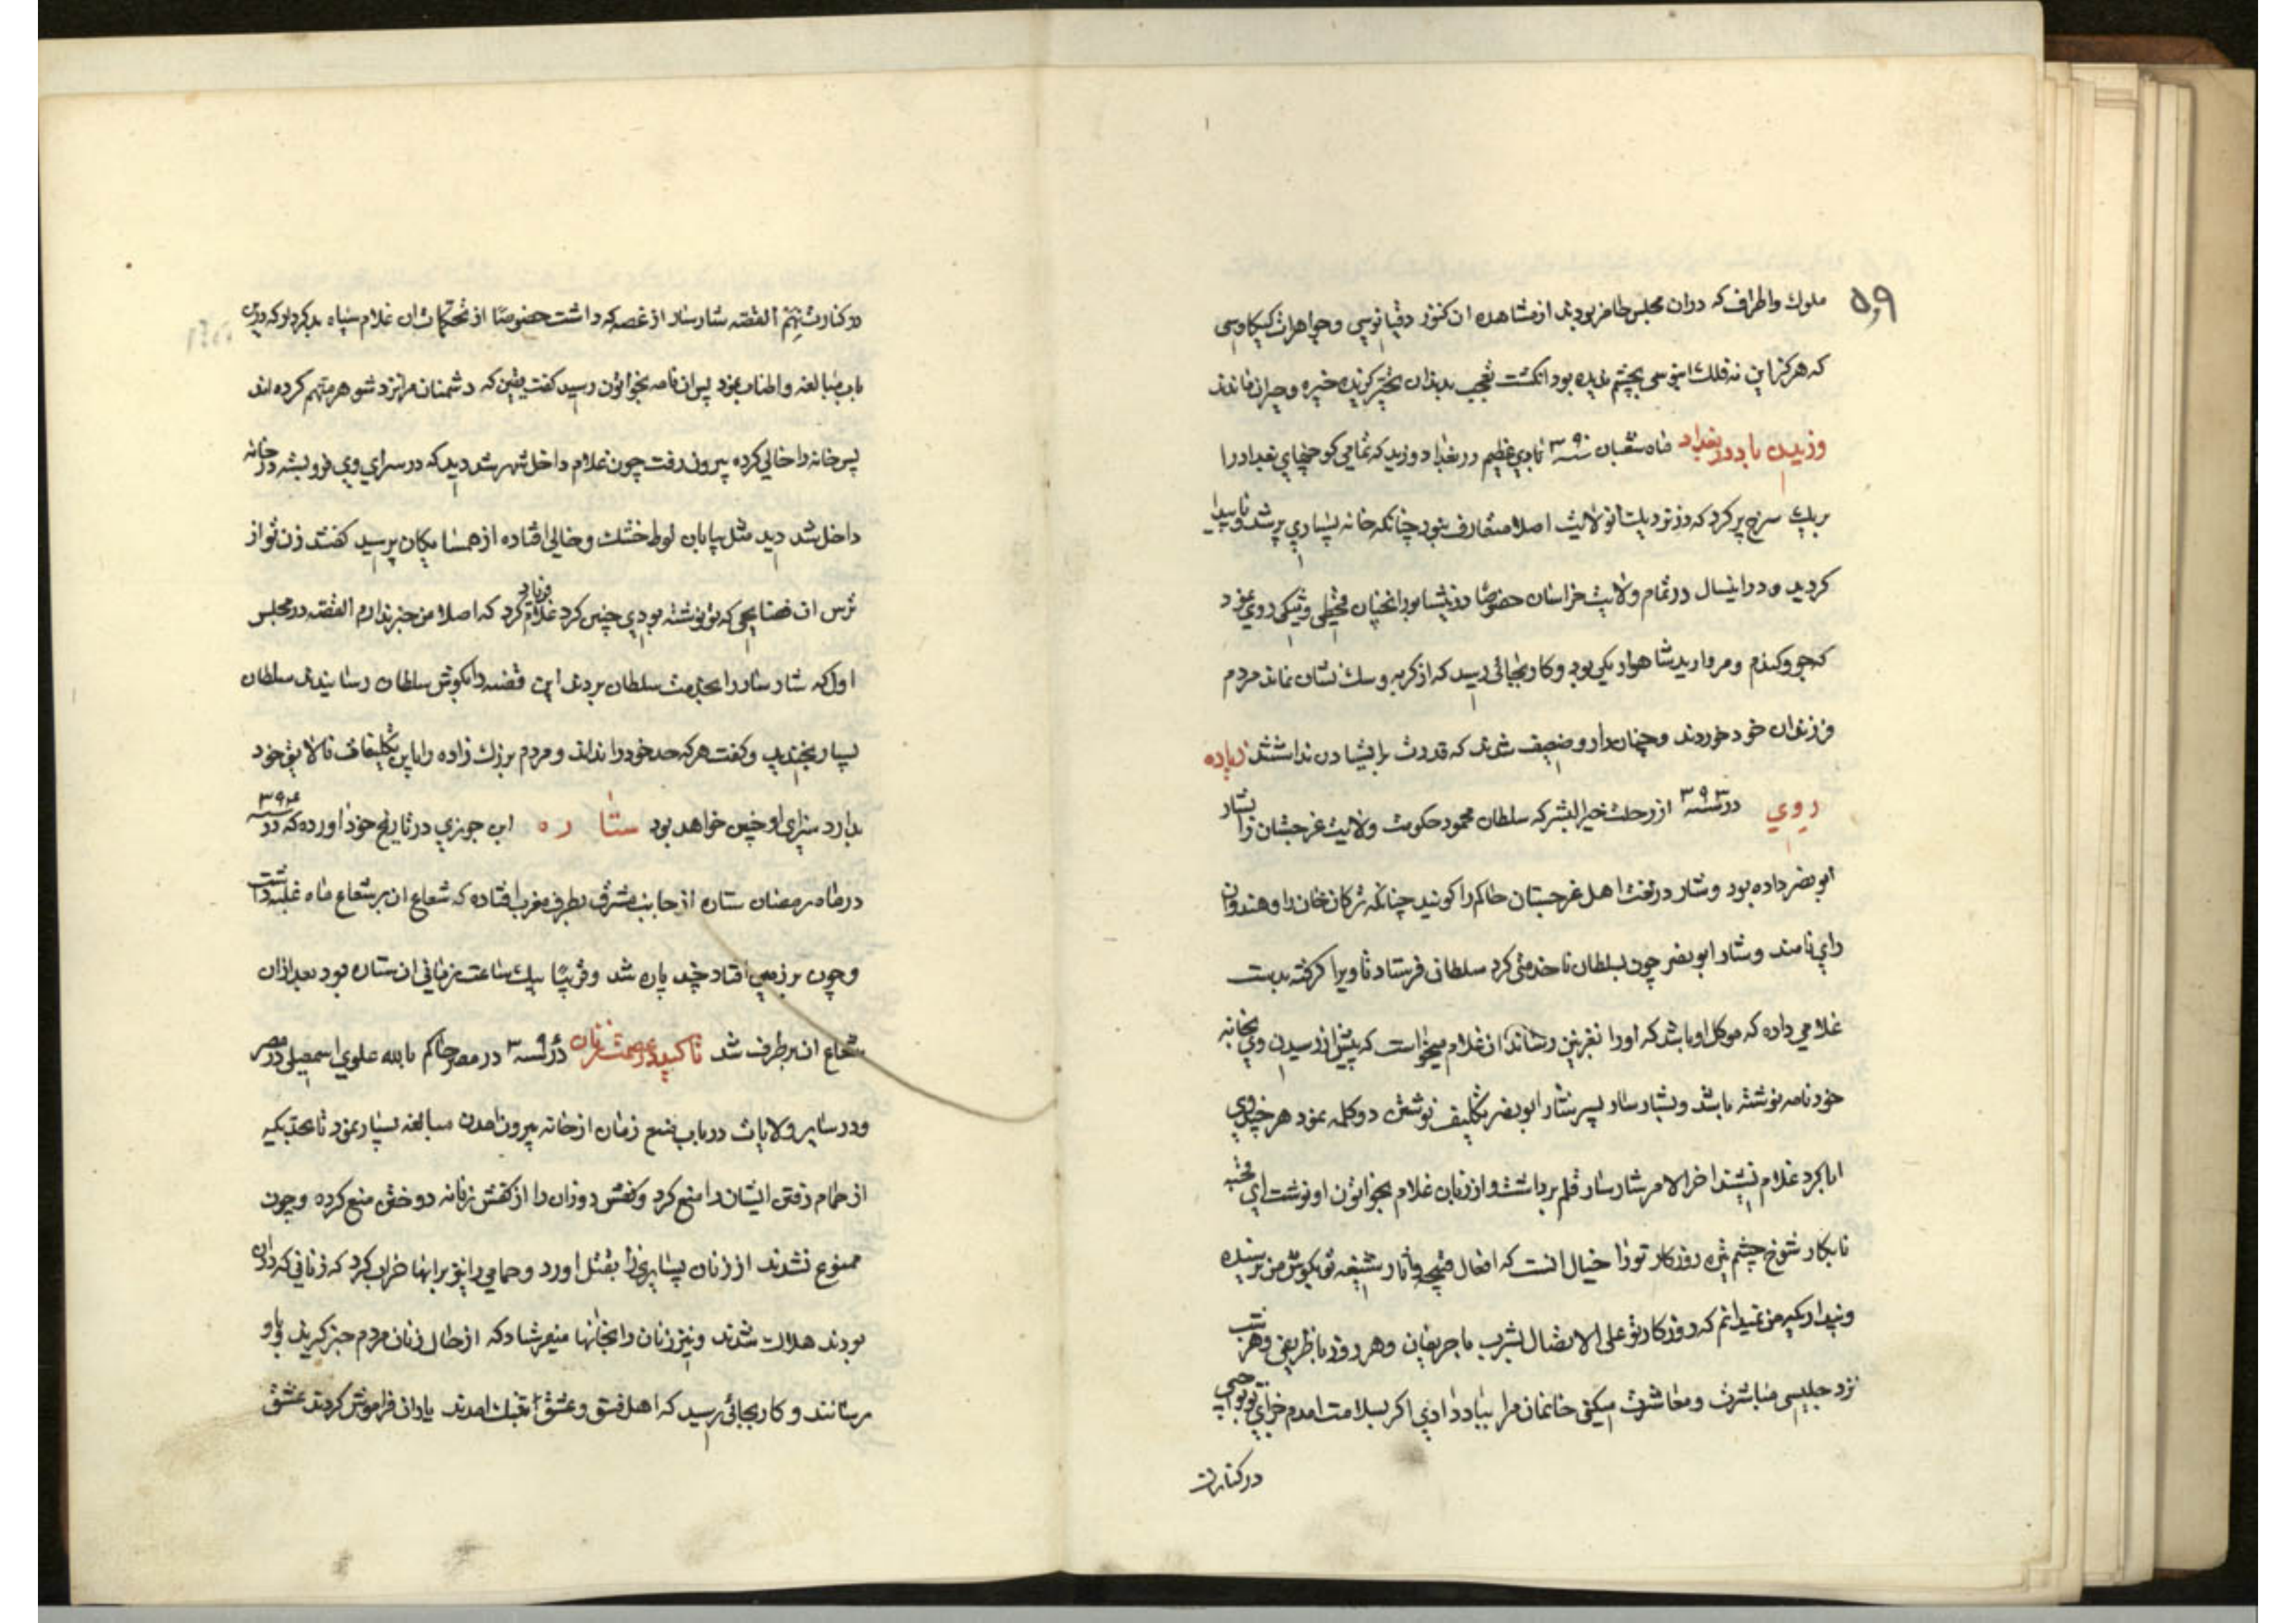 ۵۹
ملوك واطراف که دران مجلس حاضر بودند از مشاهده ان کنوز دقیانوسی وجواهرات کیکاوسی
که هرکز این نه فلك ابنوسی بچشم ندیده بود انکشت تعجب بدندان تحیر کزیده خیره وحیران ماندند
وزیدن باد در بغداد ماه شعبان سنه ۳۹۰ بادی عظیم در بغداد وزید که تمامی کوچهای بغداد را
بریك سرخ پر کرد که در نزدیك انولایت اصلا متعارف نبود چنانکه خانه بسیاری پر شد و ناپیدا
کردید ودر اینسال در تمام ولایت خراسان خصوصا در نیشابور انچنان قحطی وتنکی روی نمود
که جو وکندم ومروارید شاهوار یکی بود وکار بجائی رسید که از کربه وسك نشان نماند مردم
فرزندان خود خوردند وچنان زار وضعیف شدند که قدرت بر ایستادن نداشتند زیاده
روی در سنه ۳۹۳ از رحلت خیر البشر که سلطان محمود حکومت ولایت غرجستان را بشار
ابو نصر داده بود وشار در لغت اهل غرجستان حاکم را کویند چنانکه ترکان خان را وهندوان
رای نامند وشار ابو نصر چون بسلطان ناخدمتی کرد سلطان فرستاد تا ویرا کرفته بدست
غلامی داده که موکل او باشد که اورا نغزنین رساند ان غلام میخواست که پیش از رسیدن وی بخانه
خود نامه نوشته باشد وبشار سار پسر شار ابو نصر تکلیف نوشتن دو کلمه نمود هر چند وی
ابا کرد غلام نشنید اخر الامر شار سار قلم برداشت واز زبان غلام بخواتون او نوشت ای قحبه
نابکار شوخ چشم تیره روزکار تورا خیال انست که افعال قبیحه واثار شنیعه تو بکوش من نرسیده
وپنداریکه من نمیدانم که روزکار تو علی الاتصال بشرب با حریفان وهر روز با ظریفی وهر شب
نزد جلیسی مباشرت ومعاشرت میکنی خانمان مرا بباد دادی اکر بسلامت امدم جزای تو بواجبی
در کنارت
در کنارت نهم القصه شار سار از غصه که داشت خصوصا از تحکمات ان غلام سیاه بدکردار که درین
باب مبالغه واطناب نمود پس ان نامه بخواتون رسید کفت یقین که دشمنان مرا نزد شوهر متهم کرده اند
پس خانه را خالی کرده بیرون رفت چون غلام داخل شهر شد دید که در سرای وی فرو بسته در خانه
داخل شد دید مثل بیابان لوط خشك وخالی افتاده از همسایکان پرسید کفتند زن تو از
ترس ان فضایحی که تو نوشته بودی چنین کرد غلام فریاد کرد که اصلا من خبر ندارم القصه در مجلس
اول که شار سار را بخدمت سلطان بردند این قصه را بکوش سلطان رسانیدند سلطان
بسیار بخندید وکفت هرکه حد خود را نداند ومردم بزرك زاده را باین تکلیفات نالایق خود
بدارد سزای او چنین خواهد بود ستاره ابن جوزی در تاریخ خود اورده که در سنه ۳۹۴
در ماه رمضان ستاره از جانب مشرق بطرف مغرب افتاده که شعاع ان بر شعاع ماه غلبه داشت
وچون بر زمین افتاد چند پاره شد وقریبا بیك ساعت زمانی ان ستاره بود بعد ازان
شعاع ان برطرف شد تاکید در عصمت زنان در سنه ۳۹ در مصر حاکم بالله علوی اسمعیلی در مصر
ودر سایر ولایات در باب منع زنان از خانه بیرون امدن مبالغه بسیار نمود تا بحدیکه
از حمام رفتن ایشان را منع کرد وکفش دوزان را از کفش زنانه دوختن منع کرده وچون
ممنوع نشدند از زنان بسیاری را بقتل اورد وحمامی را نیز برانها خراب کرد که زنانی که دران
بودند هلاك شدند ونیز زنان را بخانها میفرستاد که از حال زنان مردم خبر کیرند وباو
رسانند وکار بجائی رسید که اهل فسق وعشق بتنك امدند یاران فراموش کردند عشق